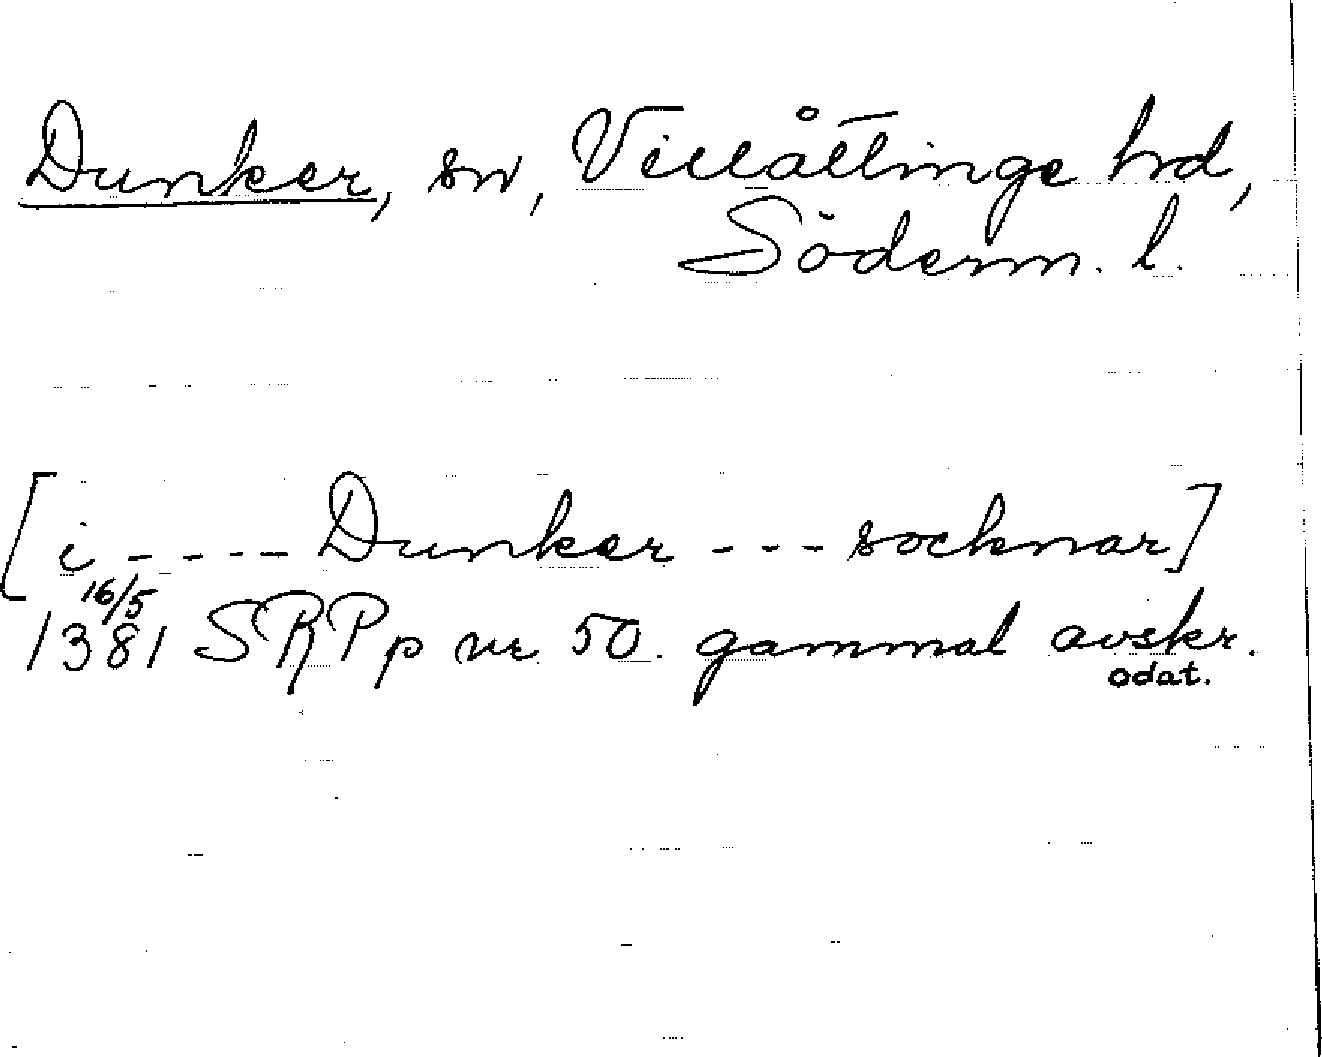 Dunker, sn, Villåttinge hd,
Söderm. l.
[i ---- Dunker --- socknar]
16/5
1381 SRPp nr 50. gammal avskr.
odat.